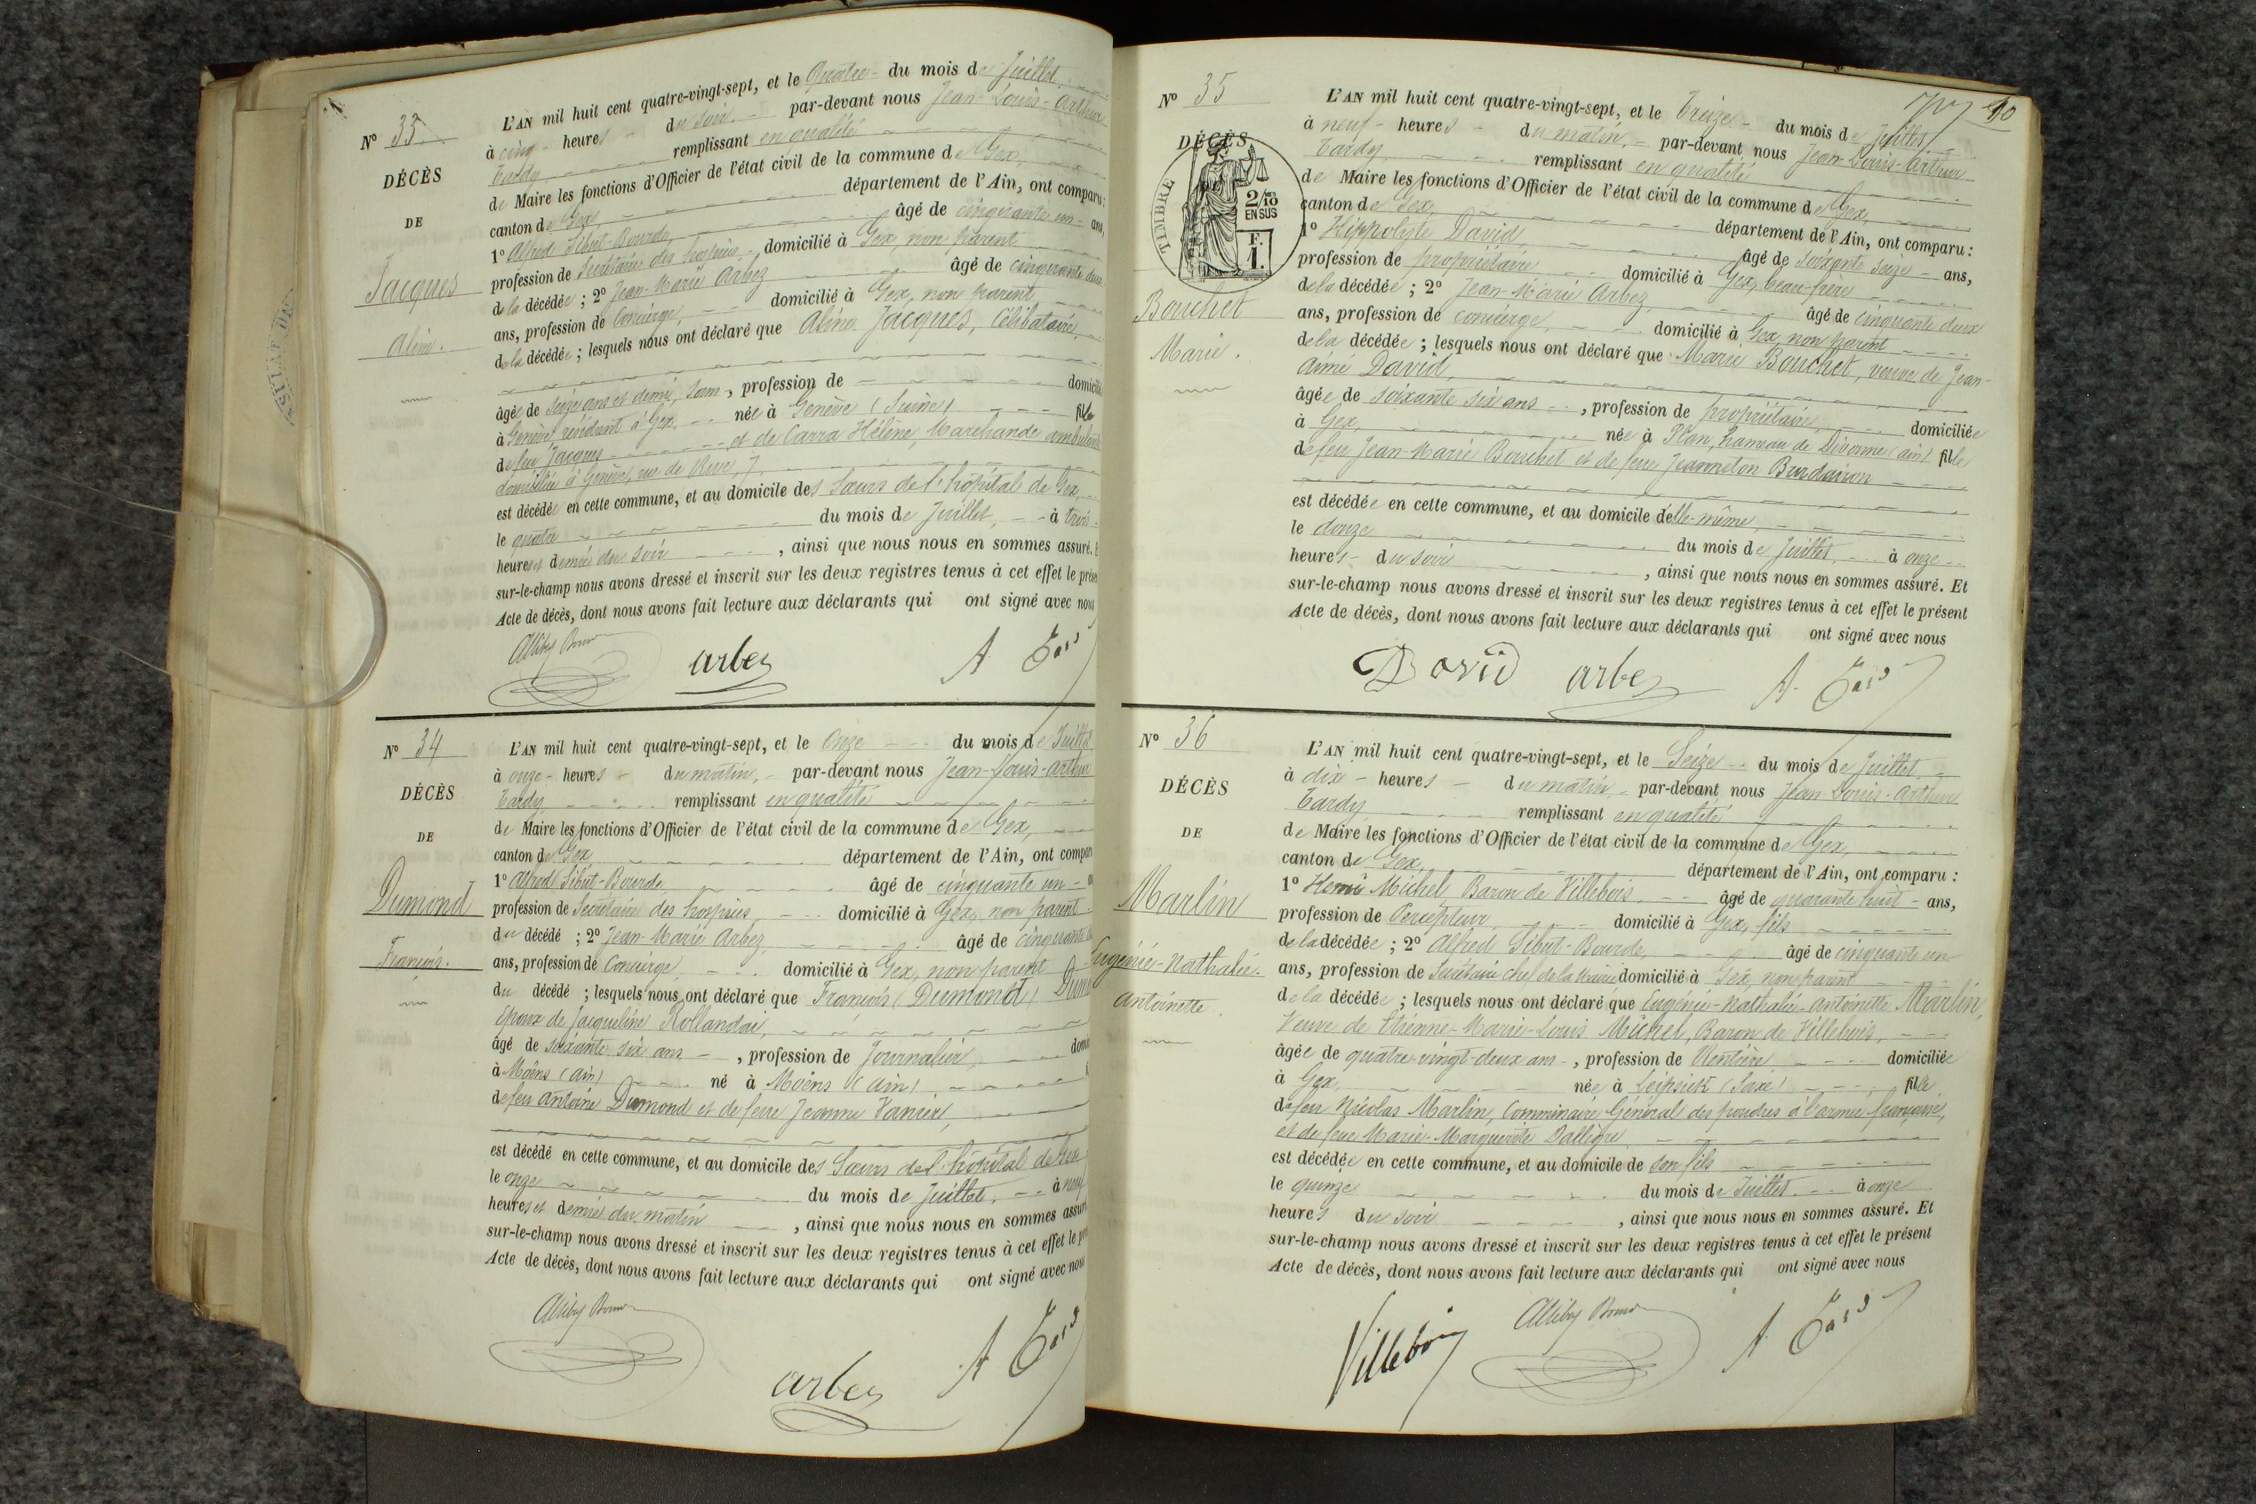 N° 33
DÉCÈS
DE
Jacques
Aline.
L'AN mil huit cent quatre-vingt-sept, et le Quatre du mois de Juillet
à cinq heures du soir par-devant nous Jean-Louis-Arthur
Tardy remplissant en qualité
de Maire les fonctions d'Officier de l'état civil de la commune de Gex,
canton de Gex, département de l'Ain, ont comparu :
1° Alfred Sibut-Bourde, âgé de cinquante un ans,
profession de Secrétaire des hospices, domicilié à Gex, non parent
de la décédée ; 2° Jean-Marie Arbez âgé de cinquante deux
ans, profession de Concierge, domicilié à Gex, non parent
de la décédée ; lesquels nous ont déclaré que Aline Jacques, Célibataire,
âgée de seize ans et demi, sans, profession de domiciliée
à Genève, résidant à Gex. née à Genève (Suisse) fille
de feu Jacques et de Carra Hélène, Marchande ambulante
domiciliée à Genève, rue de Rive, 7.
est décédée en cette commune, et au domicile des Sœurs de l'hôpital de Gex,
le quatre du mois de Juillet, à trois
heures et demie du soir, ainsi que nous nous en sommes assuré. E
sur-le-champ nous avons dressé et inscrit sur les deux registres tenus à cet effet le prése
Acte de décès, dont nous avons fait lecture aux déclarants qui ont signé avec nous
ASibut Bourde arbez A Tardy
N° 34
DÉCÈS
DE
Dumond
François.
L'AN mil huit cent quatre-vingt-sept, et le Onze du mois de Juillet
à onze heures du matin, par-devant nous Jean-Louis-Arthur
Tardy remplissant en qualité
de Maire les fonctions d'Officier de l'état civil de la commune de Gex,
canton de Gex département de l'Ain, ont compar
1° Alfred Sibut-Bourde âgé de cinquante un
profession de Secrétaire des hospices, domicilié à Gex, non parent
du décédé ; 2° Jean-Marie Arbez âgé de cinquante
ans, profession de Concierge domicilié à Gex, non parent
du décédé ; lesquels nous ont déclaré que François (Dumond) Dum
époux de Jacqueline Rollandai,
âgé de soixante six ans, profession de Journalier, domi
à Moëns (Ain) né à Moëns (Ain)
de feu Antoine Dumond et de feue Jeanne
est décédé en cette commune, et au domicile des Sœurs de l'hôpital de Gex
le onze du mois de Juillet, à neuf
heures et demie du matin, ainsi que nous nous en sommes assur
sur-le-champ nous avons dressé et inscrit sur les deux registres tenus à cet effet le pr
Acte de décès, dont nous avons fait lecture aux déclarants qui ont signé avec nous
ASibut Bourde
arbez A Tardy
90
N° 35
DÉCÈS
TIMBRE
2/10
EN SUS
F.
1.
Bouchet
Marie.
L'AN mil huit cent quatre-vingt-sept, et le Treize du mois de Juillet
à neuf heures du matin, par-devant nous Jean-Louis-Arthur
Tardy remplissant en qualité
de Maire les fonctions d'Officier de l'état civil de la commune de Gex,
canton de Gex, département de l'Ain, ont comparu :
1° Hippolyte David, âgé de soixante seize ans,
profession de propriétaire domicilié à Gex, beau-frère
de la décédée ; 2° Jean-Marie Arbez, âgé de cinquante deux
ans, profession de concierge, domicilié à Gex, non parent
de la décédée ; lesquels nous ont déclaré que Marie Bouchet, veuve de Jean-
Aimé David,
âgée de soixante six ans, profession de propriétaire, domiciliée
à Gex, née à Plan, hameau de Divonne (Ain) fille
de feu Jean-Marie Bouchet et de feue Jeanneton Burdairon
est décédée en cette commune, et au domicile d'elle-même
le douze du mois de Juillet, à onze
heures du soir, ainsi que nous nous en sommes assuré. Et
sur-le-champ nous avons dressé et inscrit sur les deux registres tenus à cet effet le présent
Acte de décès, dont nous avons fait lecture aux déclarants qui ont signé avec nous
David arbez A. Tardy
N° 36
DÉCÈS
DE
Marlin
Eugénie-Nathalie-
Antoinette.
L'AN mil huit cent quatre-vingt-sept, et le Seize du mois de Juillet
à dix heures du matin, par-devant nous Jean-Louis-Arthur
Tardy remplissant en qualité
de Maire les fonctions d'Officier de l'état civil de la commune de Gex,
canton de Gex, département de l'Ain, ont comparu :
1° Henri Michel Baron de Villebois, âgé de quarante huit ans,
profession de Percepteur domicilié à Gex, fils
de la décédée ; 2° Alfred Sibut-Bourde, âgé de cinquante un
ans, profession de Secrétaire chef de la Mairie domicilié à Gex, non parent
de la décédée ; lesquels nous ont déclaré que Eugénie-Nathalie-Antoinette Marlin,
Veuve de Etienne-Marie-Louis Michel, Baron de Villebois,
âgée de quatre-vingt-deux ans, profession de Rentière domiciliée
à Gex née à Leipsick (Saxe) fille
de feu Nicolas Marlin, Commissaire Général des poudres à l'armée française,
et de feue Marie-Marguerite Dallègre
est décédée en cette commune, et au domicile de son fils
le quinze du mois de Juillet à onze
heures du soir, ainsi que nous nous en sommes assuré. Et
sur-le-champ nous avons dressé et inscrit sur les deux registres tenus à cet effet le présent
Acte de décès, dont nous avons fait lecture aux déclarants qui ont signé avec nous
Villebois ASibut Bourde A. Tardy